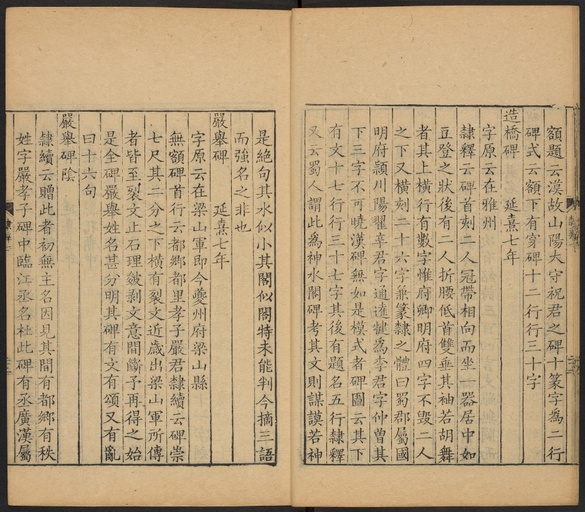 額題云漢故山陽太守祝君之碑十篆字爲二行
碑式云額下有穿碑十二行行三十字
造橋碑　延熹七年
字原云在雅州
隸釋云碑首刻二人冠帶相向而坐一器居中如
豆登之狀後有二人折腰低首雙垂其袖若胡舞
者其上橫行有數字惟府卿明府四字不毀二人
之下又橫刻二十六字兼篆隸之體曰蜀郡屬國
明府潁川陽翟辛君字通達犍爲李君字仲曾其
下三字不可曉漢碑無如是模式者碑圖云其下
有文十七行行三十七字其後有題名五行隸釋
又云蜀人謂此爲神水閣碑考其文則謀謨若神
是絶句其水似小其閣似閣特未能判今摘三語
而強名之非也
嚴舉碑　延熹七年
字原云在梁山軍即今夔州府梁山縣
無額碑首行云都鄉都里孝子嚴君隸續云碑崇
七尺其二分之下橫有裂文近歲出梁山軍所傳
者皆至裂文止石理皴剥文意間斷予再得之始
是全碑嚴舉姓名甚分明其碑有文有頌又有亂
曰十六句
嚴舉碑陰
隸續云贈此者初無主名因見其間有都鄉有秩
姓字嚴孝子碑中臨江丞名杜此碑有丞廣漢屬